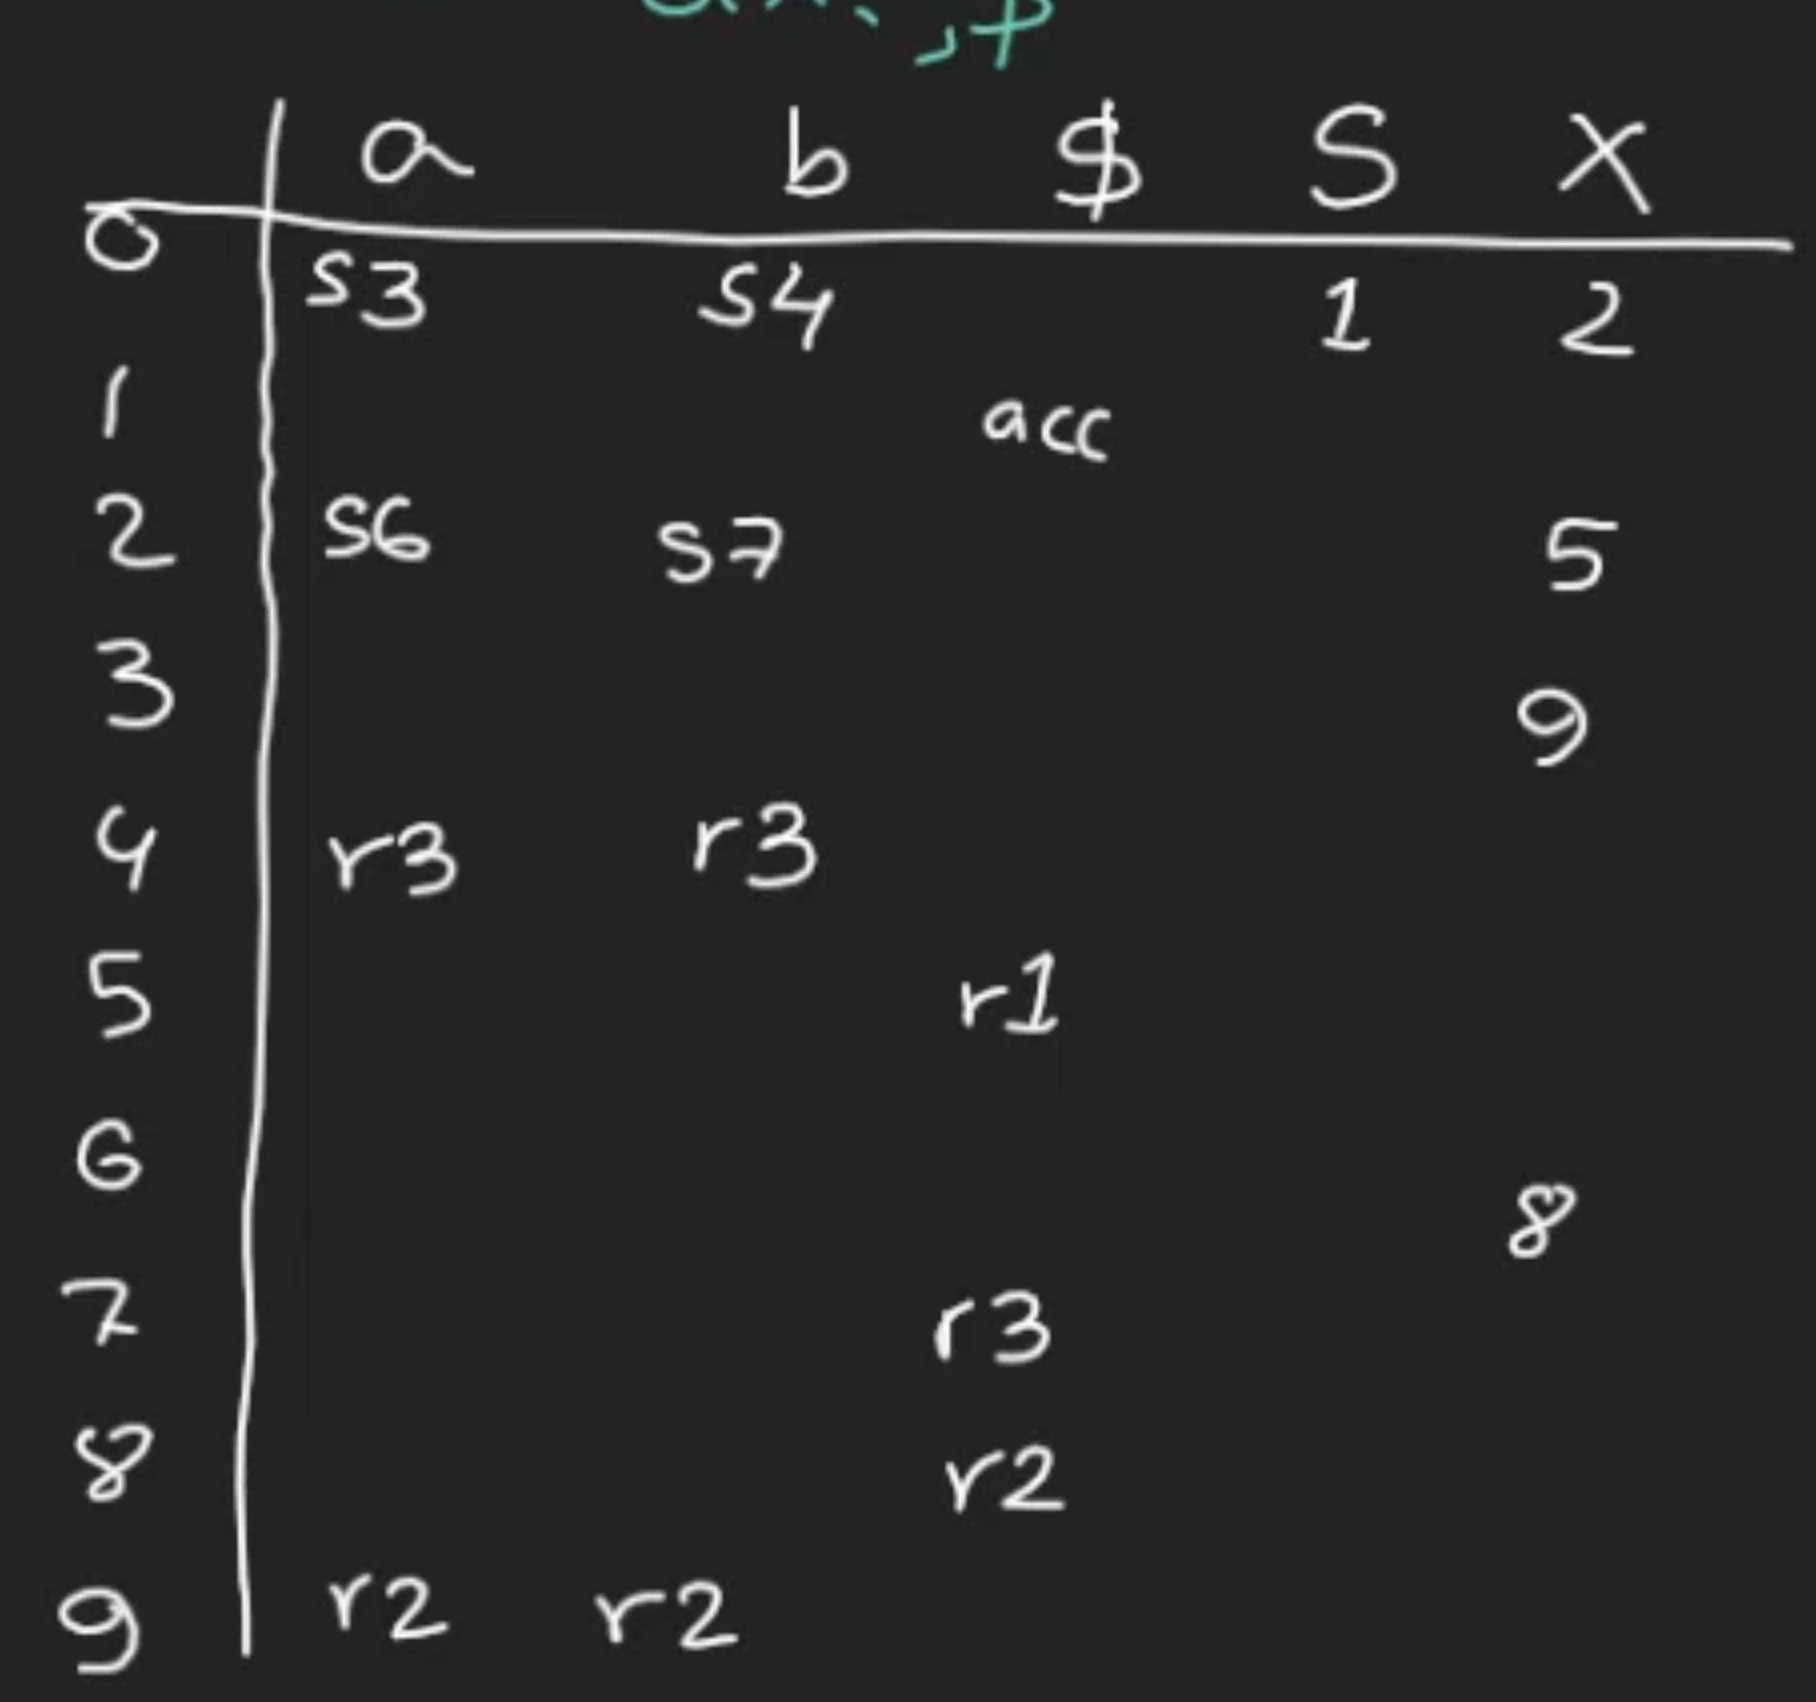 , $
a b $ S X
0 s3 s4 1 2
1 acc
2 s6 s7 5
3 9
4 r3 r3
5 r1
6 8
7 r3
8 r2
9 r2 r2